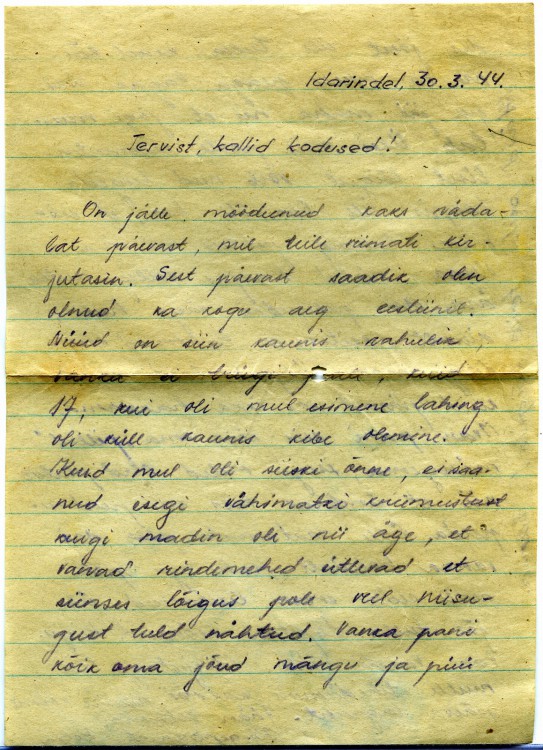 Idarindel, 30.3.44.
Tervist, kallid kodused!
On jälle möödunud kaks näda-
lat päevast, mil teile viimati kir-
jutasin. Sest päevast saadik olen
olnud ka kogu aeg eesliinil.
Nüüd on siin kaunis rahulik,
vanka ei tülgi peale, kuid
17, kui oli mul esimene lahing
oli küll kaunis kibe olemine.
Kuid mul oli siiski õnne, ei saa-
nud isegi vähimatki kriimustust
kuigi madin oli nii äge, et
vanad rindemehed ütlevad et
siinses lõigus pole veel niisu-
gust tuld nähtud. Vanka pani
kõik oma jõud mängu ja püü